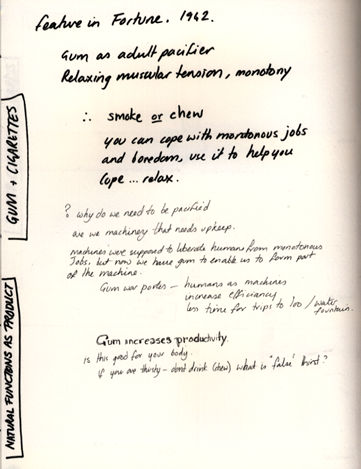 feature in Fortune. 1942.
Gum as adult pacifier
Relaxing muscular tension, monotony
GUM + CIGARETTES
∴ smoke or chew
you can cope with monotonous jobs
and boredom, use it to help you
cope ... relax.
? why do we need to be pacified
are we machinery that needs upkeep.
machines were supposed to liberate humans from monotonous
jobs, but now we have gum to enable us to form part
of the machine.
Gum war poster - humans as machines
increase efficiency
less time for trips to loo / water
fountain.
NATURAL FUNCTIONS AS PRODUCT
Gum increases productivity.
Is this good for your body.
if you are thirsty - dont drink (chew) what is 'false' thirst?